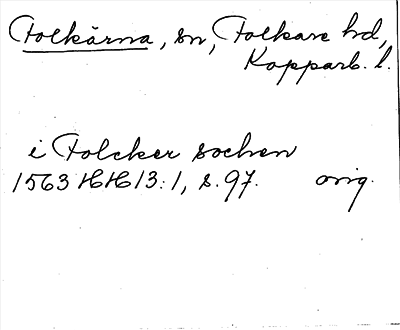 Folkärna, sn, Folkare hd,
Kopparb. l.
i Folcker sochen
1563 HH 13:1, s. 97. orig.